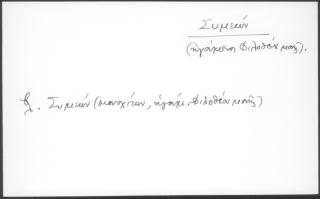 Συμεών
(ἡγούμενος Φιλοθέου μονῆς).
Συμεών (μοναχῶν, ἡγούμ. Φιλοθέου μονῆς)